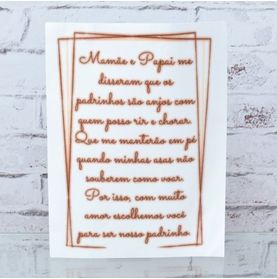 Mamãe e Papai me
disseram que os
padrinhos são anjos com
quem posso rir e chorar.
Que me manterão em pé
quando minhas asas não
souberem como voar.
Por isso, com muito
amor escolhemos você
para ser nosso padrinho.